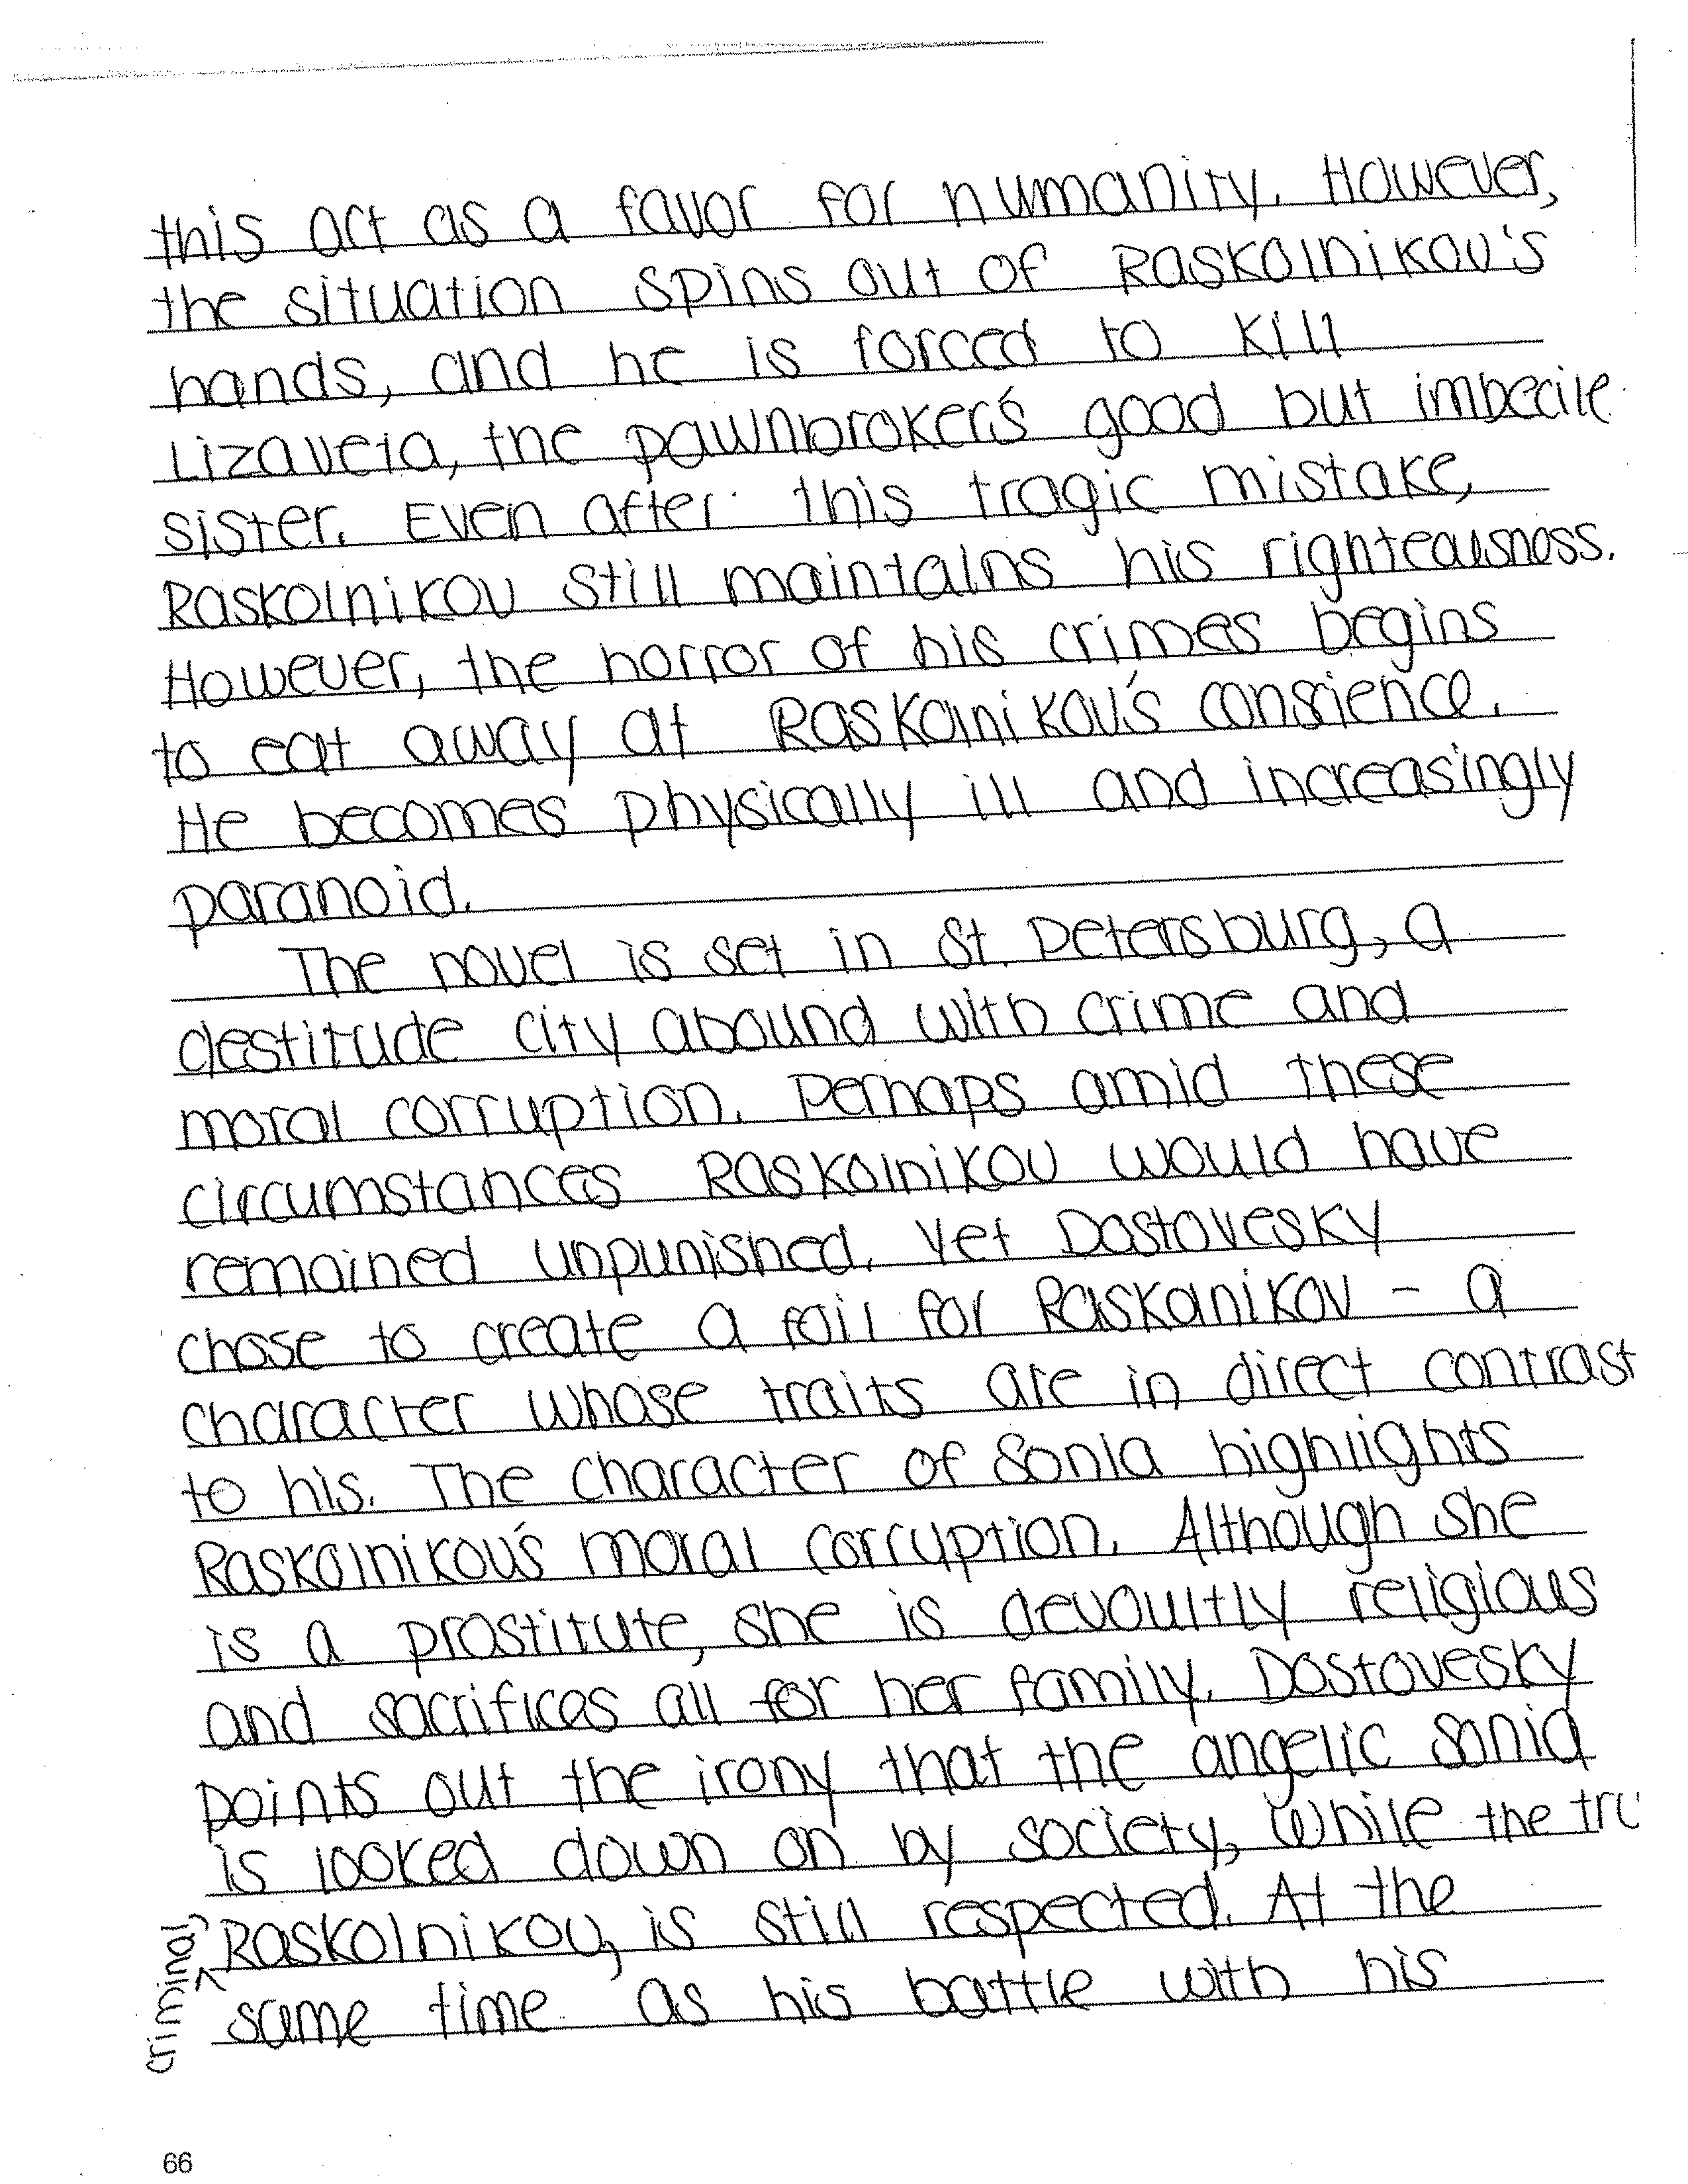 this act as a favor for humanity. However,
the situation spins out of Raskolnikov's
hands, and he is forced to kill
Lizaveta, the pawnbroker's good but imbecile
sister. Even after this tragic mistake,
Raskolnikov still maintains his righteousness.
However, the horror of his crimes begins
to eat away at Raskolnikov's conscience.
He becomes physically ill and increasingly
paranoid.
The novel is set in St. Petersburg, a
destitude city abound with crime and
moral corruption. Perhaps amid these
circumstances Raskolnikov would have
remained unpunished. Yet Dostovesky
chose to create a foil for Raskanikov - a
character whose traits are in direct contrast
to his. The character of Sonia highlights
Raskolnikov's moral corruption. Although she
is a prostitute, she is devoultly religious
and sacrifices all for her family. Dostovesky
points out the irony that the angelic Sonia
is looked down on by society, while the tru
criminal, Raskolnikov, is still respected. At the
same time as his battle with his
66